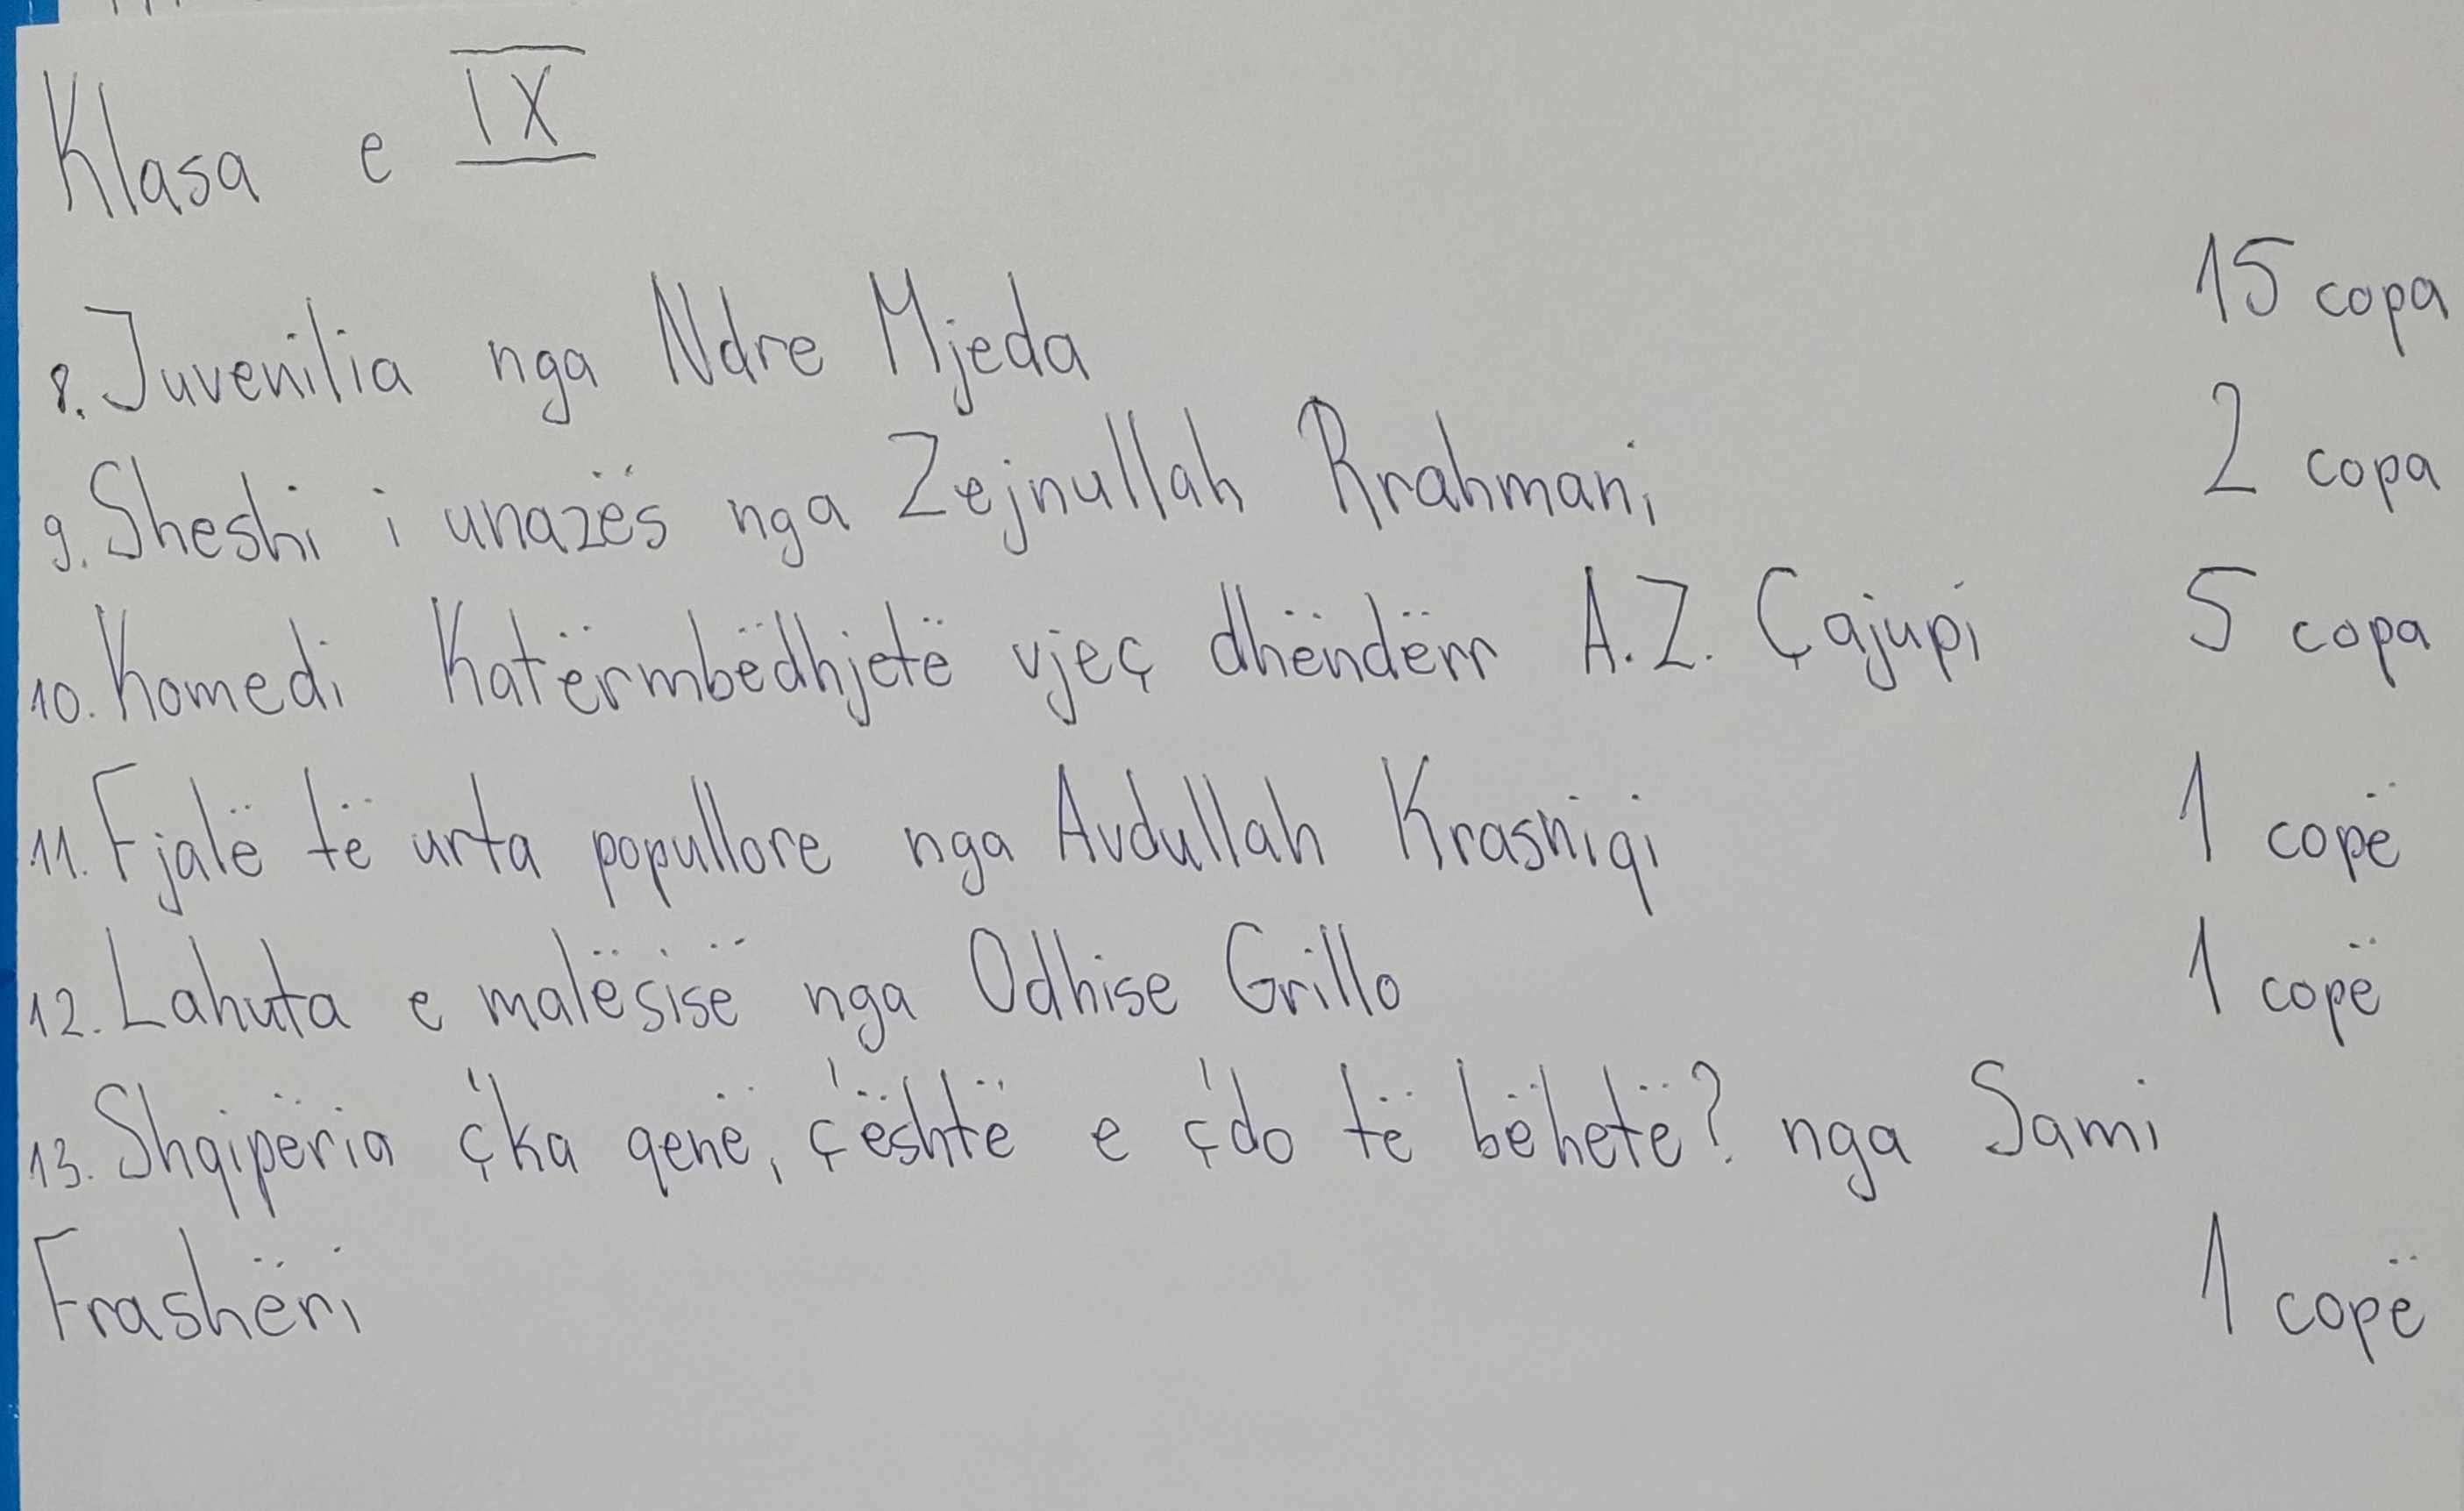 Klasa e IX
8. Juvenilia nga Ndre Mjeda 15 copa
9. Sheshi i unazës nga Zejnullah Rrahmani 2 copa
10. Komedi Katërmbëdhjetë vjeç dhëndërr A.Z. Çajupi 5 copa
11. Fjalë të urta popullore nga Avdullah Krasniqi 1 copë
12. Lahuta e malësisë nga Odhise Grillo 1 copë
13. Shqipëria ç'ka qenë, ç'është e ç'do të bëhetë? nga Sami
Frashëri 1 copë